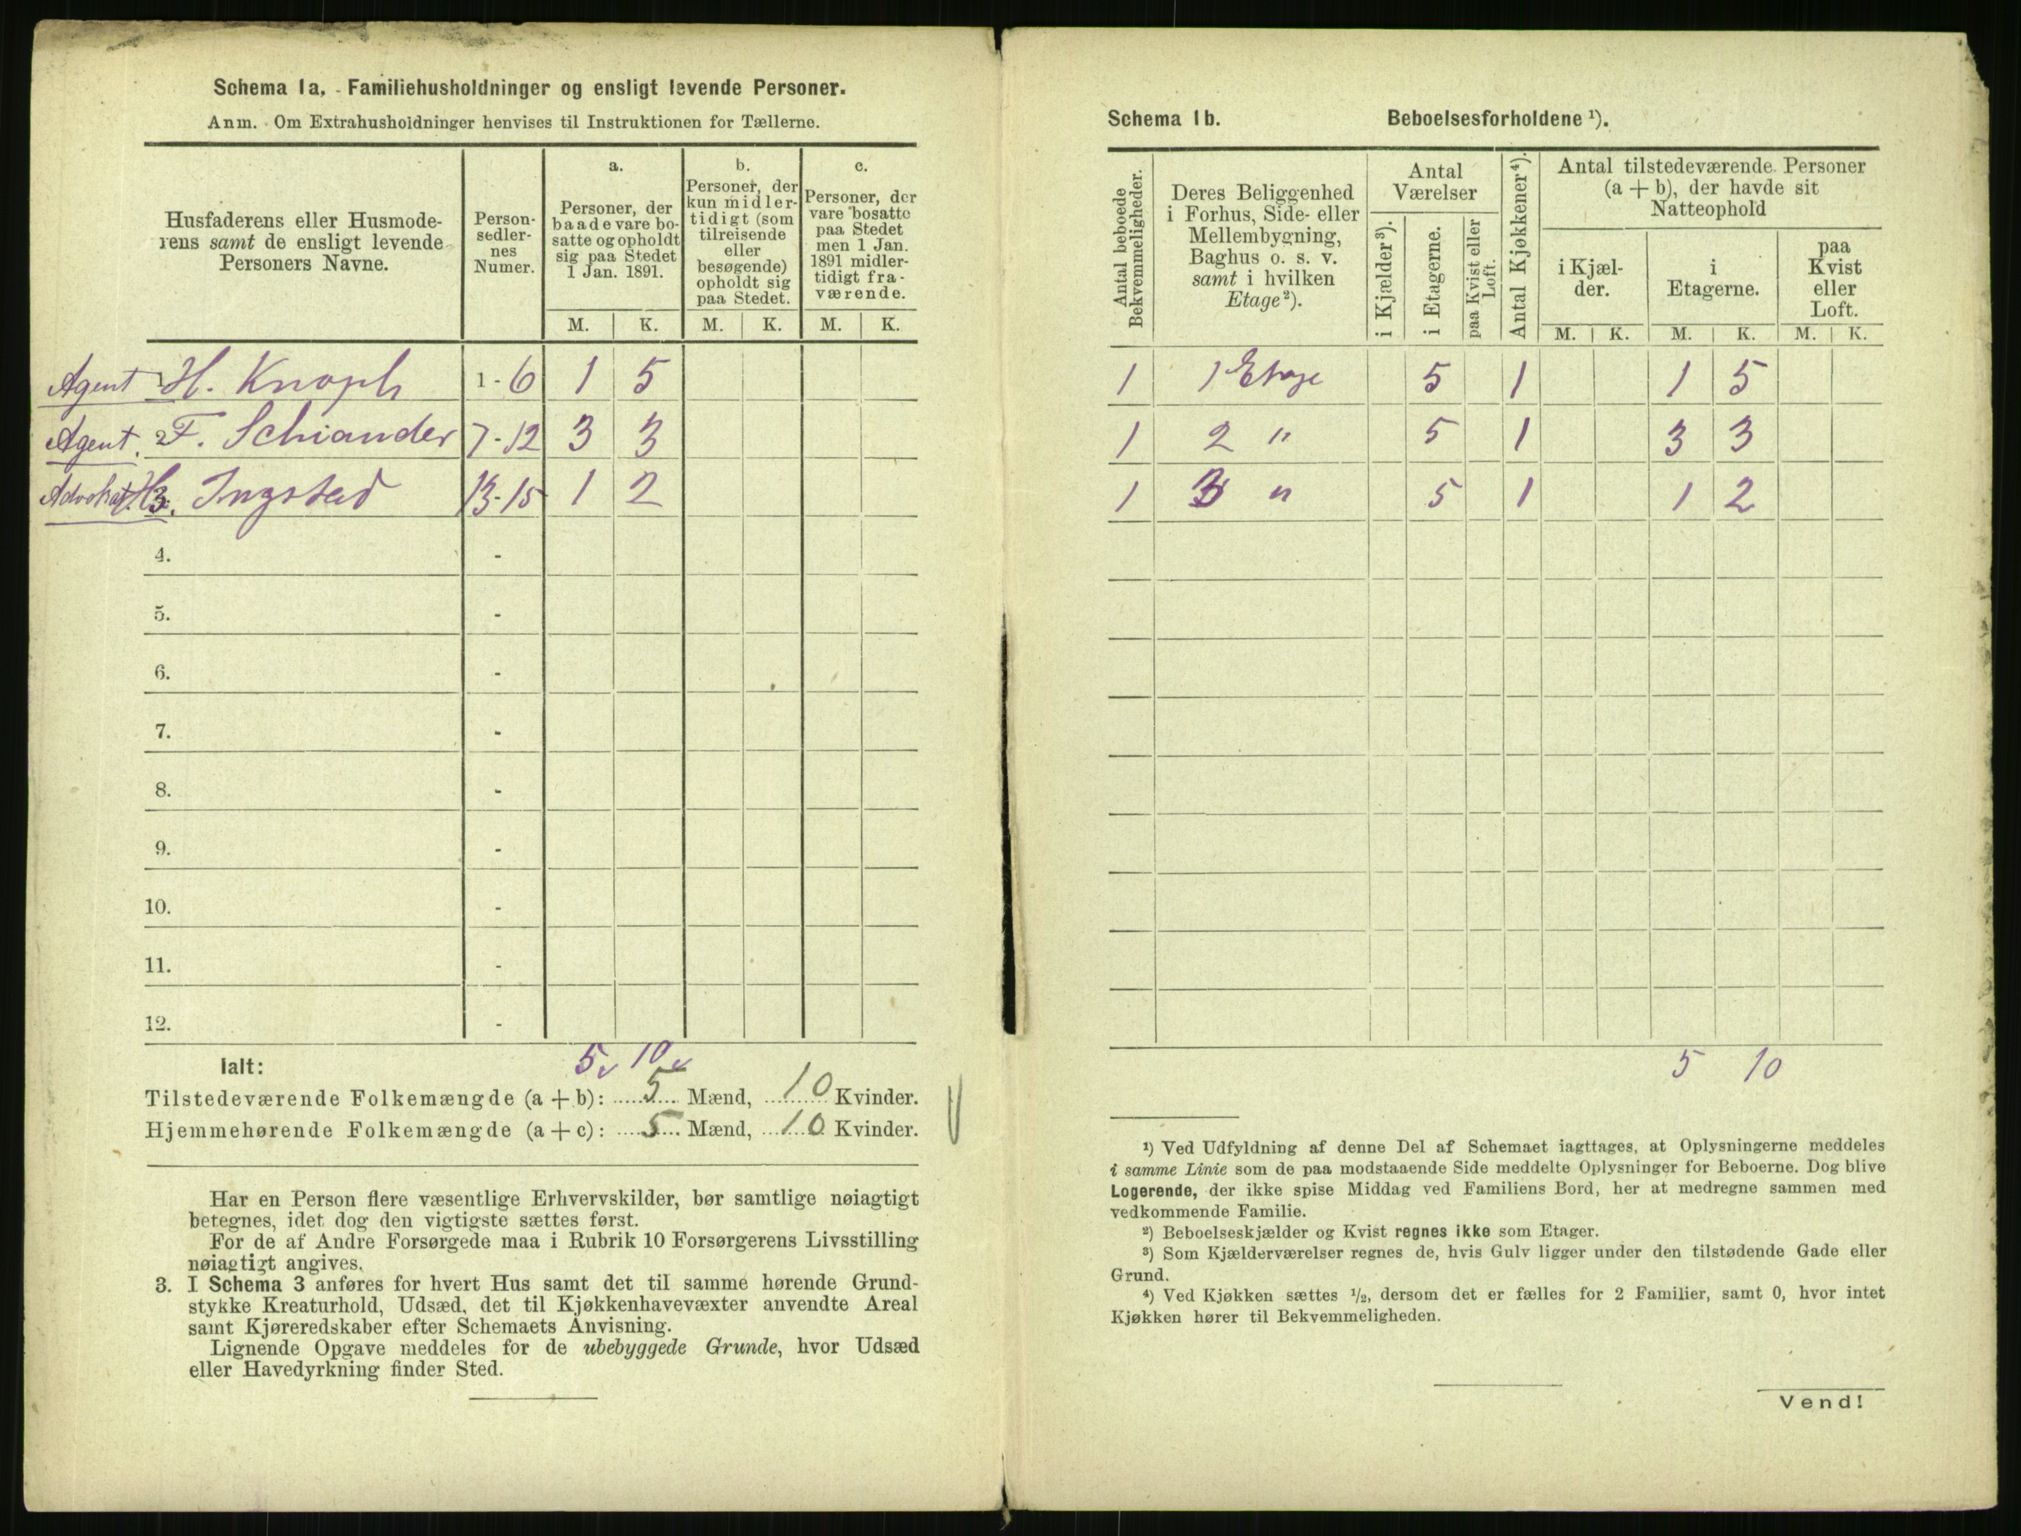 Schema 1a. - Familiehusholdninger og ensligt levende Personer.
Anm. Om Extrahusholdninger henvises til Instruktionen for Tællerne.
Husfaderens eller Husmode-
rens samt de ensligt levende
Personers Navne.
Person-
sedler-
nes
Numer.
a.
Personer, der
baade vare bo-
satte og opholdt
sig paa Stedet
1 Jan. 1891.
b.
Personer, der
kun midler-
tidigt (som
tilreisende
eller
besøgende)
opholdt sig
paa Stedet.
c.
Personer, der
vare bosatte
paa Stedet
men 1 Jan.
1891 midler-
tidigt fra-
værende.
M. K. M. K. M. K.
Agent H. Knoph 1 - 6 1 5
Agent. 2 F. Schiander 7 - 12 3 3
Advokat. H. 3. Ingstad 13 - 15 1 2
4. -
5. -
6. -
7. -
8. -
9. -
10. -
11. -
12. -
Ialt: 5 10
Tilstedeværende Folkemængde (a + b): 5 Mænd, 10 Kvinder.
Hjemmehørende Folkemængde (a + c): 5 Mænd, 10 Kvinder.
Har en Person flere væsentlige Erhvervskilder, bør samtlige nøiagtigt
betegnes, idet dog den vigtigste sættes først.
For de af Andre Forsørgede maa i Rubrik 10 Forsørgerens Livsstilling
nøiagtigt angives.
3. I Schema 3 anføres for hvert Hus samt det til samme hørende Grund-
stykke Kreaturhold, Udsæd, det til Kjøkkenhavevæxter anvendte Areal
samt Kjøreredskaber efter Schemaets Anvisning.
Lignende Opgave meddeles for de ubebyggede Grunde, hvor Udsæd
eller Havedyrkning finder Sted.
Schema 1b. Beboelsesforholdene ¹).
Antal beboede
Bekvemmeligheder.
Deres Beliggenhed
i Forhus, Side- eller
Mellembygning,
Baghus o. s. v.
samt i hvilken
Etage ²).
Antal
Værelser
i Kjælder ³).
i Etagerne.
paa Kvist eller
Loft.
Antal Kjøkkener ⁴).
Antal tilstedeværende Personer
(a + b), der havde sit
Natteophold
i Kjæl-
der.
i
Etagerne.
paa
Kvist
eller
Loft.
M. K. M. K. M. K.
1 1 Etage 5 1 1 5
1 2 " 5 1 3 3
1 3 " 5 1 1 2
5 10
¹) Ved Udfyldning af denne Del af Schemaet iagttages, at Oplysningerne meddeles
i samme Linie som de paa modstaaende Side meddelte Oplysninger for Beboerne. Dog blive
Logerende, der ikke spise Middag ved Familiens Bord, her at medregne sammen med
vedkommende Familie.
²) Beboelseskjælder og Kvist regnes ikke som Etager.
³) Som Kjælderværelser regnes de, hvis Gulv ligger under den tilstødende Gade eller
Grund.
⁴) Ved Kjøkken sættes ½, dersom det er fælles for 2 Familier, samt 0, hvor intet
Kjøkken hører til Bekvemmeligheden.
Vend!